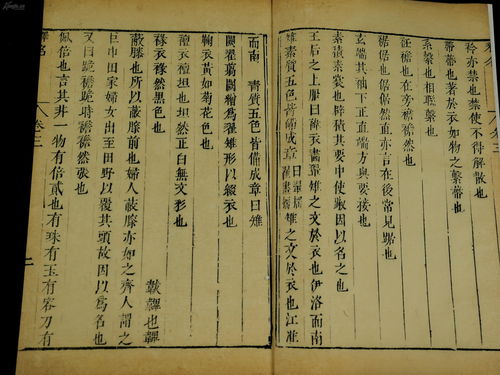 衿亦禁也禁使不得解散也
也著於衣如物之繫也
系繫也相聯繫也
衽襜也在旁襜襜然也
裾倨也倨倨然直亦言在後常見踞也
玄端其袖下正直端方與要接也
素積素裳也辟積其要中使踧因以名之也
王后之上服曰褘衣畫翬雉之文於衣也伊洛而南
雉素質五色皆備成章曰翬 雉之文於衣也江淮
而南 青質五色皆備成章曰雉
闕翟翦闕繒為翟雉形以綴衣也
鞠衣黃如菊花色也
襢衣襢坦也坦然正白無文彩也
褖衣褖然黑色也 韍韠也韠
蔽膝也所以蔽膝前也婦人蔽膝亦如之齊人謂之
巨巾田家婦女出至田野以覆其頭故因以為名也
又曰跪襜跪時襜襜然張也
佩倍也言其非一物有倍貳也有珠有玉有容刀有
釋名 卷三